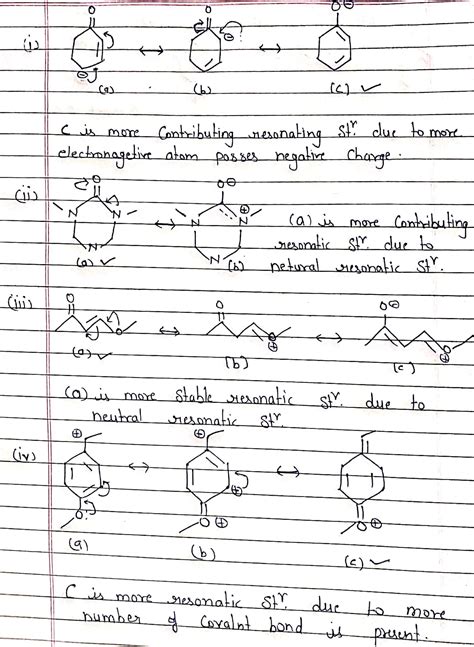 (i)
O
O
O⊖
⊖
⊖
(a)
(b)
(c) ✓
C is more Contributing resonating Stʳ. due to more
electronagetive atom posses negative Charge.
(ii)
O
O⊖
N
N
N
N
N
N
⊕
(a) ✓
(b)
(a) is more Contributing
resonatic Stʳ. due to
netural resonatic Stʳ.
(iii)
O
O
O⊖
O
O
⊕
O
⊕
(a) ✓
(b)
(c)
(a) is more Stable resonatic Stʳ. due to
neutral resonatic Stʳ.
(iv)
⊕
⊕
⊕
O
O ⊕
O ⊕
(a)
(b)
(c) ✓
C is more resonatic Stʳ. due to more
number of Covalnt bond is present.